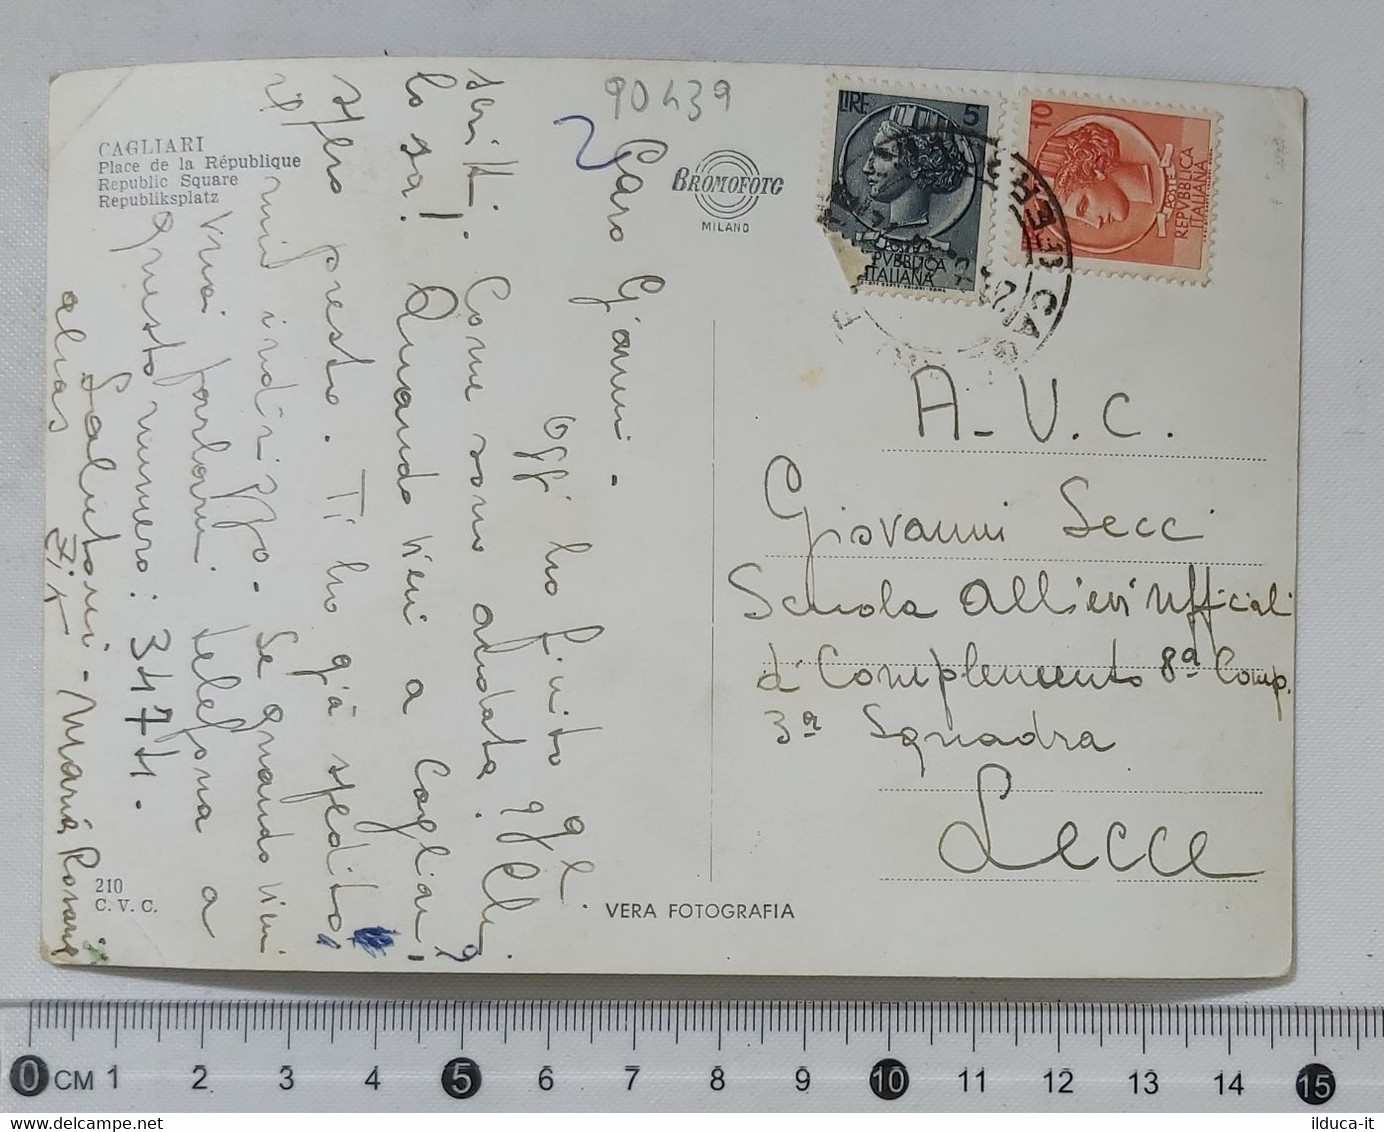 90439
CAGLIARI
Place de la République
Republic Square
Republiksplatz
BROMOFOTO
MILANO
LIRE 5
POSTE
REPVBBLICA
ITALIANA
10
POSTE
REPVBBLICA
ITALIANA
Caro Gianni -
Oggi ho finito gl
scritti. Come sono andata?
lo sa! Quando vieni a Cagliari!
spero presto. Ti ho già spedito
il mio indirizzo. Se quando vieni
vuoi parlarmi telefona a
questo numero: 3474.
Salutoni - Maria Rosaria
alias
A.V.C.
Giovanni Secci
Scuola Allievi Ufficiali
di Complemento 8ª Comp.
3ª Squadra
Lecce
210
C. V. C.
VERA FOTOGRAFIA
0 CM 1 2 3 4 5 6 7 8 9 10 11 12 13 14 15
ilduca-it